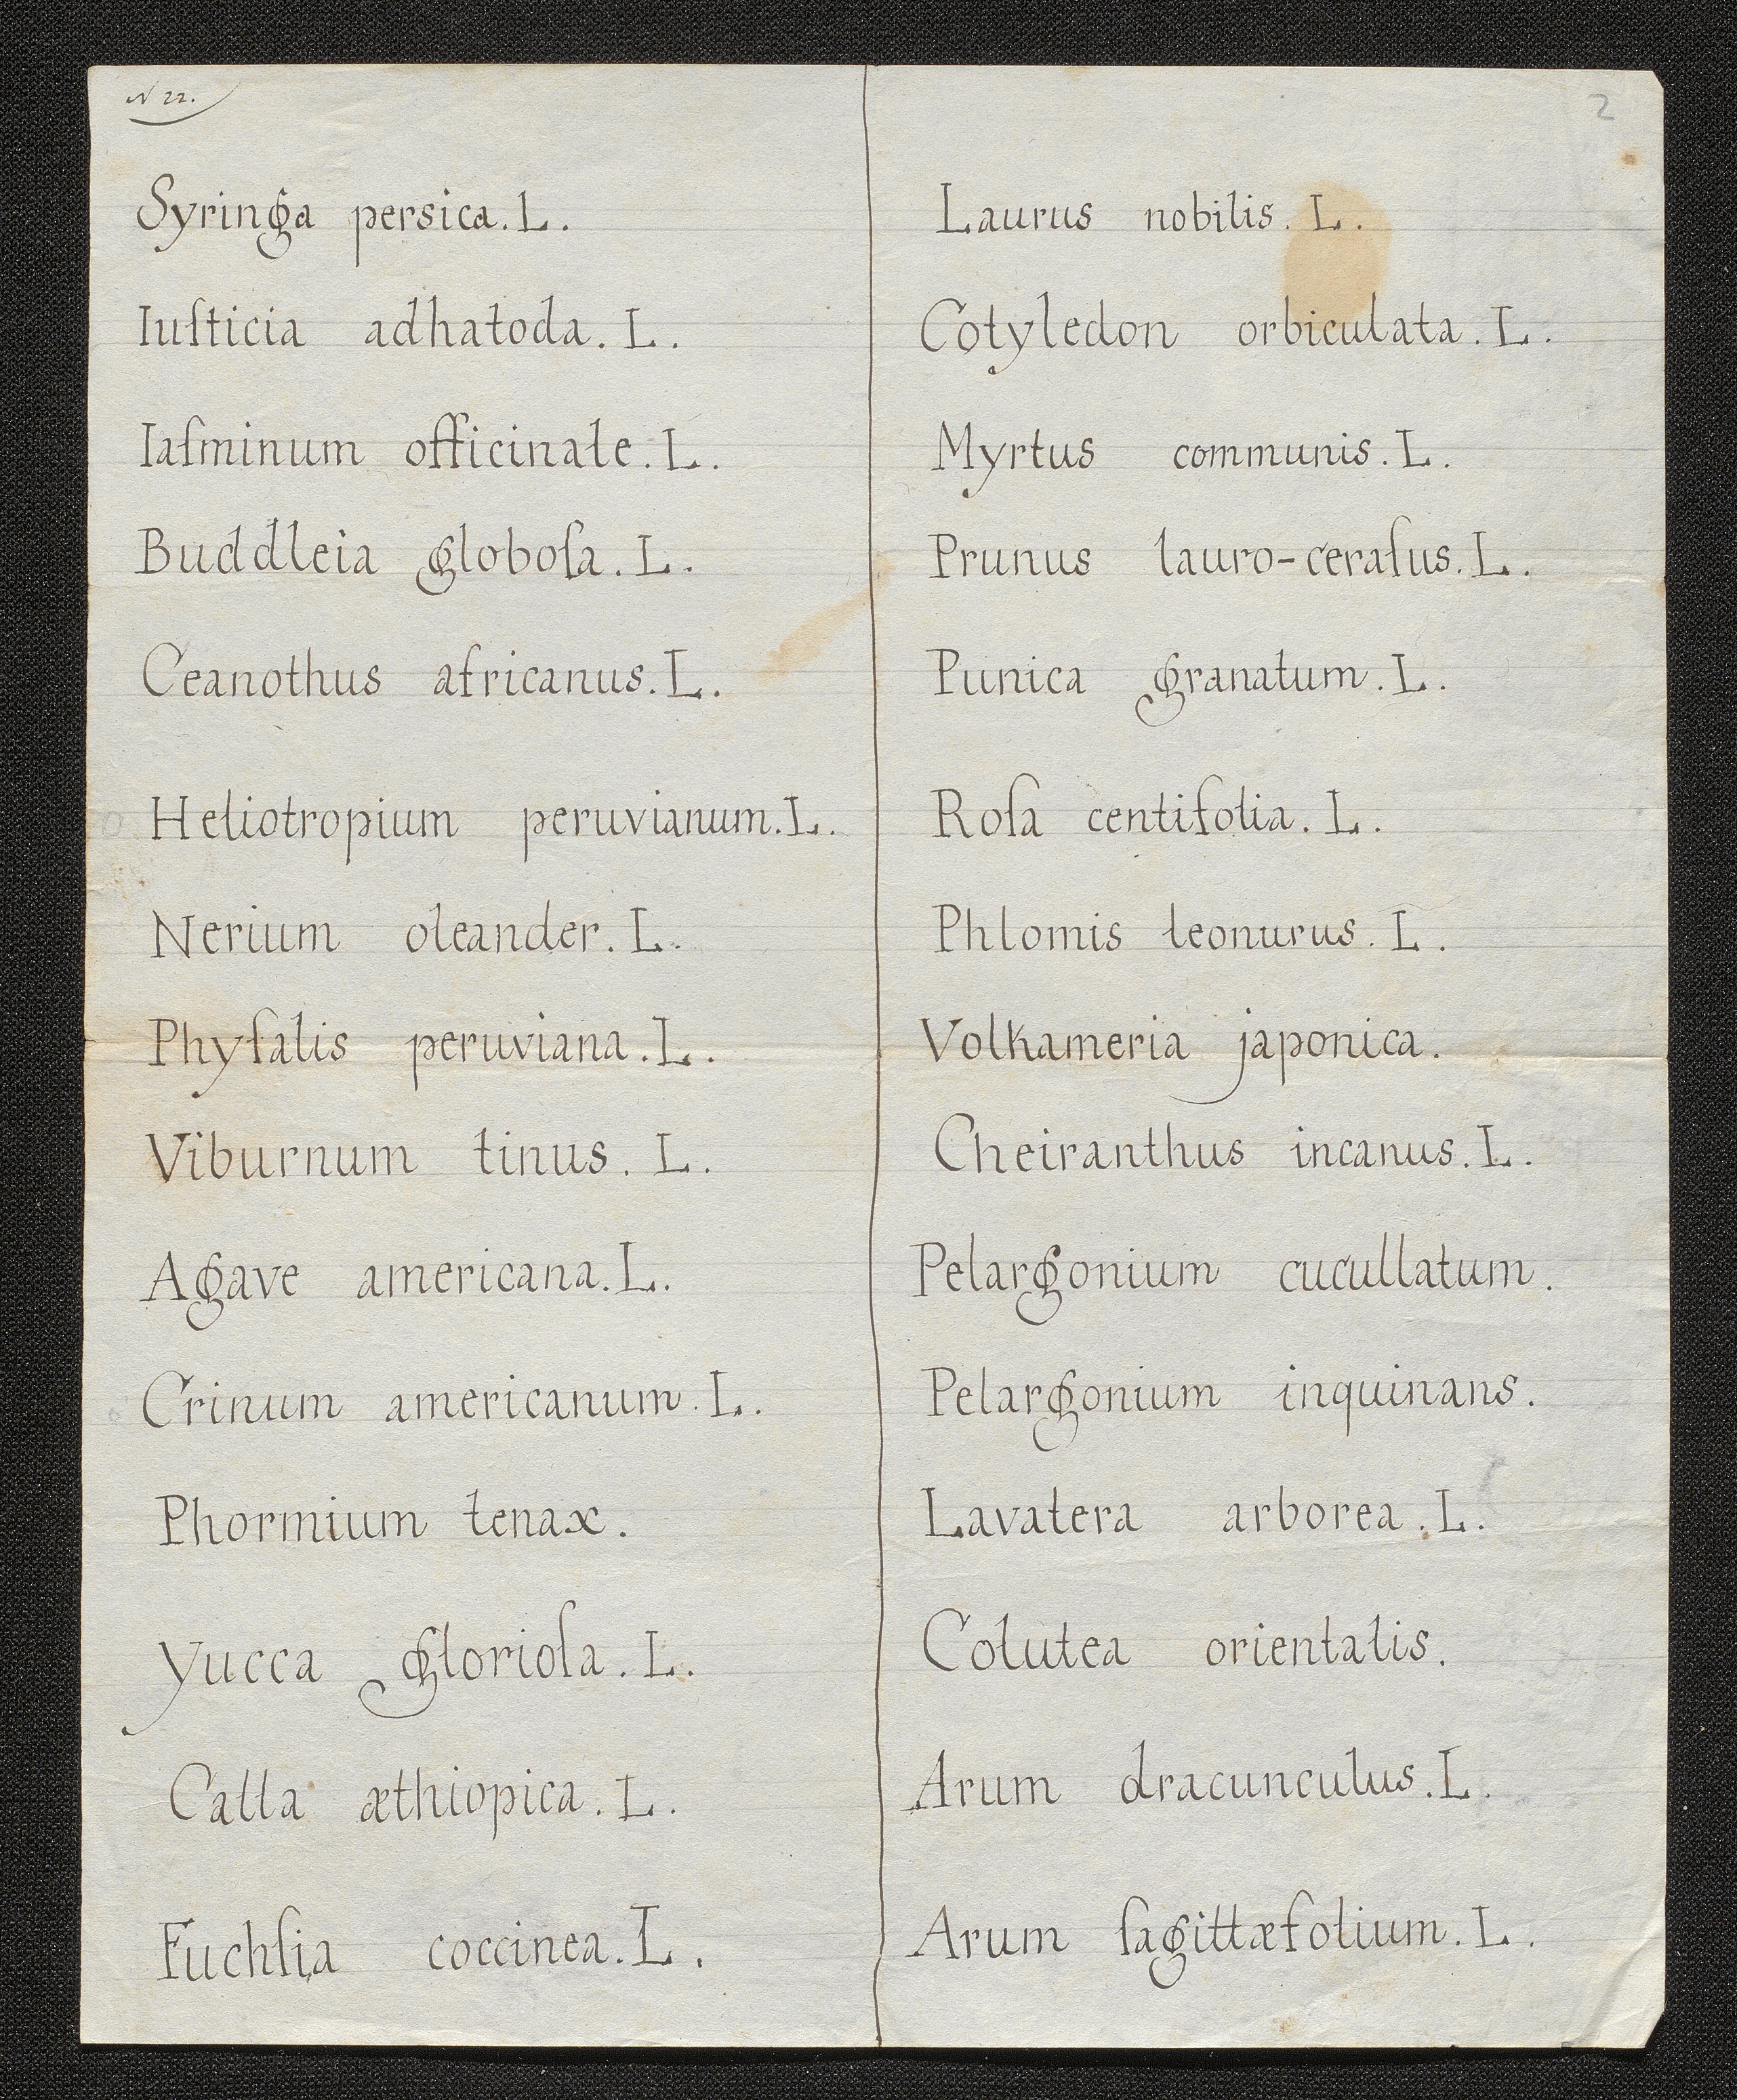 N 22.
2
Syringa persica. L.
Iuſticia adhatoda. L.
Iaſminum officinale. L.
Buddleia globoſa. L.
Ceanothus africanus. L.
Heliotropium peruvianum. L.
Nerium oleander. L.
Phyſalis peruviana. L.
Viburnum tinus. L.
Agave americana. L.
Crinum americanum. L.
Phormium tenax.
Yucca glorioſa. L.
Calla æthiopica. L.
Fuchſia coccinea. L.
Laurus nobilis. L.
Cotyledon orbiculata. L.
Myrtus communis. L.
Prunus lauro-ceraſus. L.
Punica granatum. L.
Roſa centifolia. L.
Phlomis leonurus. L.
Volkameria japonica.
Cheiranthus incanus. L.
Pelargonium cucullatum.
Pelargonium inquinans.
Lavatera arborea. L.
Colutea orientalis.
Arum dracunculus. L.
Arum ſagittæfolium. L.